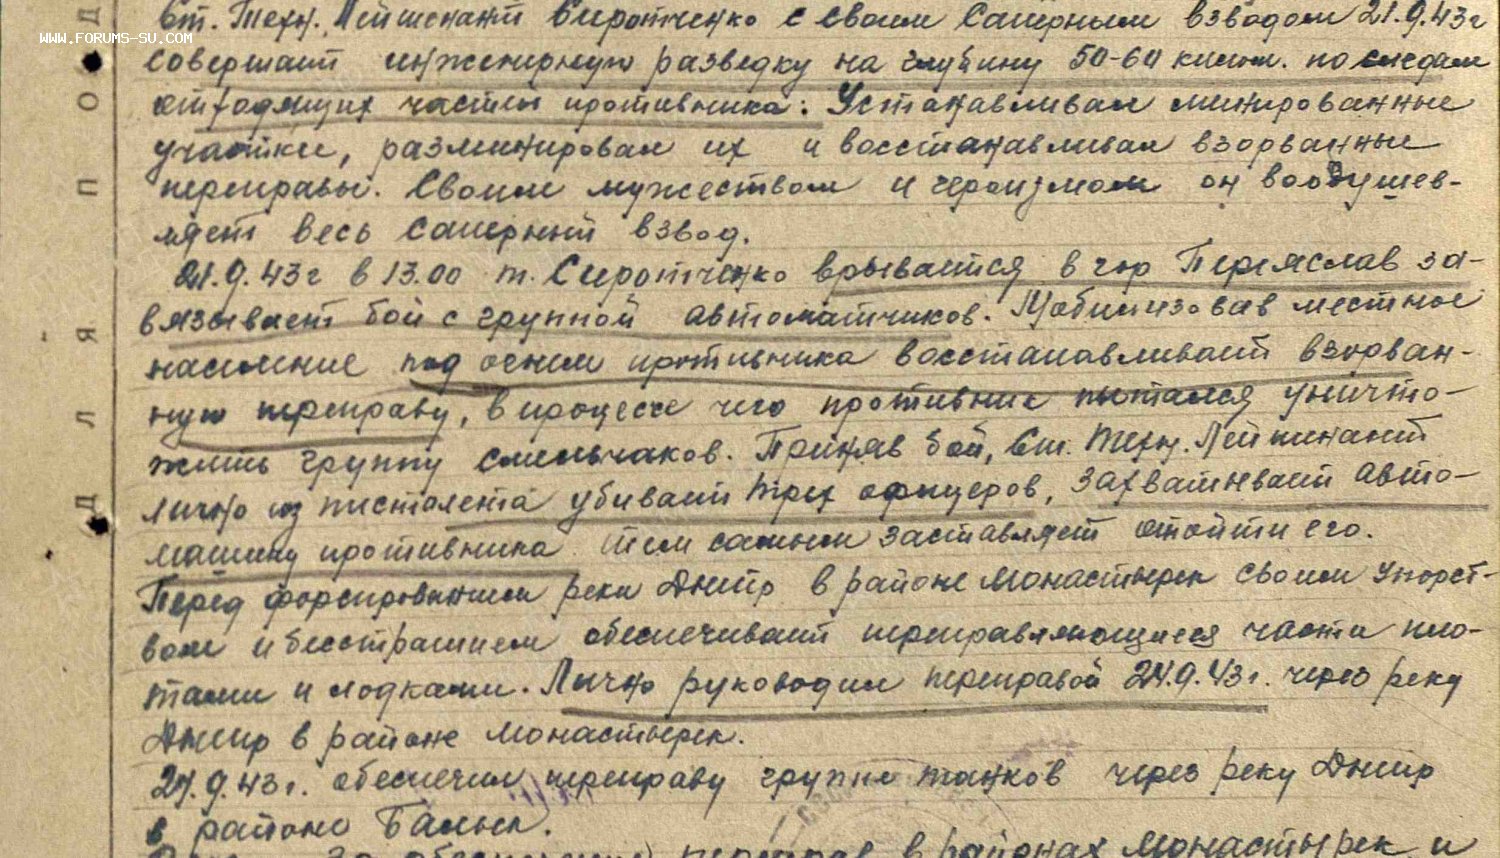 Ст. Техн. Лейтенант Сиротченко с своим Саперным взводом 21.9.43г
WWW.FORUMS-SU.COM
совершает инженерную разведку на глубину 50-60 килом. по следам
отходящих частей противника. Устанавливал минированные
участки, разминировал их и восстанавливал взорванные
переправы. Своим мужеством и героизмом он воодушев-
ляет весь саперный взвод.
21.9.43г в 13.00 т. Сиротченко врывается в гор Переяслав за-
вязывает бой с группой автоматчиков. Мобилизовав местное
население под огнем противника восстанавливает взорван-
ную переправу, в процессе чего противник пытался уничто-
жить группу смельчаков. Приняв бой, Ст. Техн. Лейтенант
лично из пистолета убивает трех офицеров, захватывает авто-
машину противника тем самым заставляет отойти его.
Перед форсированием реки Днепр в районе Монастырек своим упорст-
вом и бесстрашием обеспечивает переправляющиеся части пло-
тами и лодками. Лично руководил переправой 24.9.43г. через реку
Днепр в районе Монастырек.
27.9.43г. обеспечил переправу группы танков через реку Днепр
в районе Балык.
за обеспечение переправ в районах Монастырек и
ДЛЯ ПОД